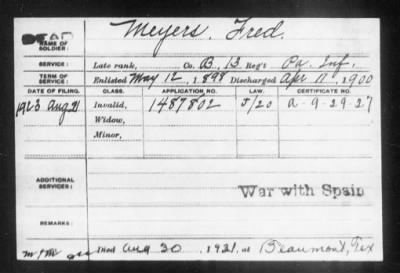 DEAD
NAME OF SOLDIER: Meyers, Fred.
SERVICE: Late rank, Co. B, 13 Reg't Pa. Inf.
TERM OF SERVICE: Enlisted May 12, 1898 Discharged Apr 11, 1900
DATE OF FILING. CLASS. APPLICATION NO. LAW. CERTIFICATE NO.
1923 Aug 21 Invalid, 1487802 5/20 a-9-29-27
Widow,
Minor,
ADDITIONAL SERVICES: War with Spain
REMARKS:
Died Aug 30, 1921, at Beaumont, Tex